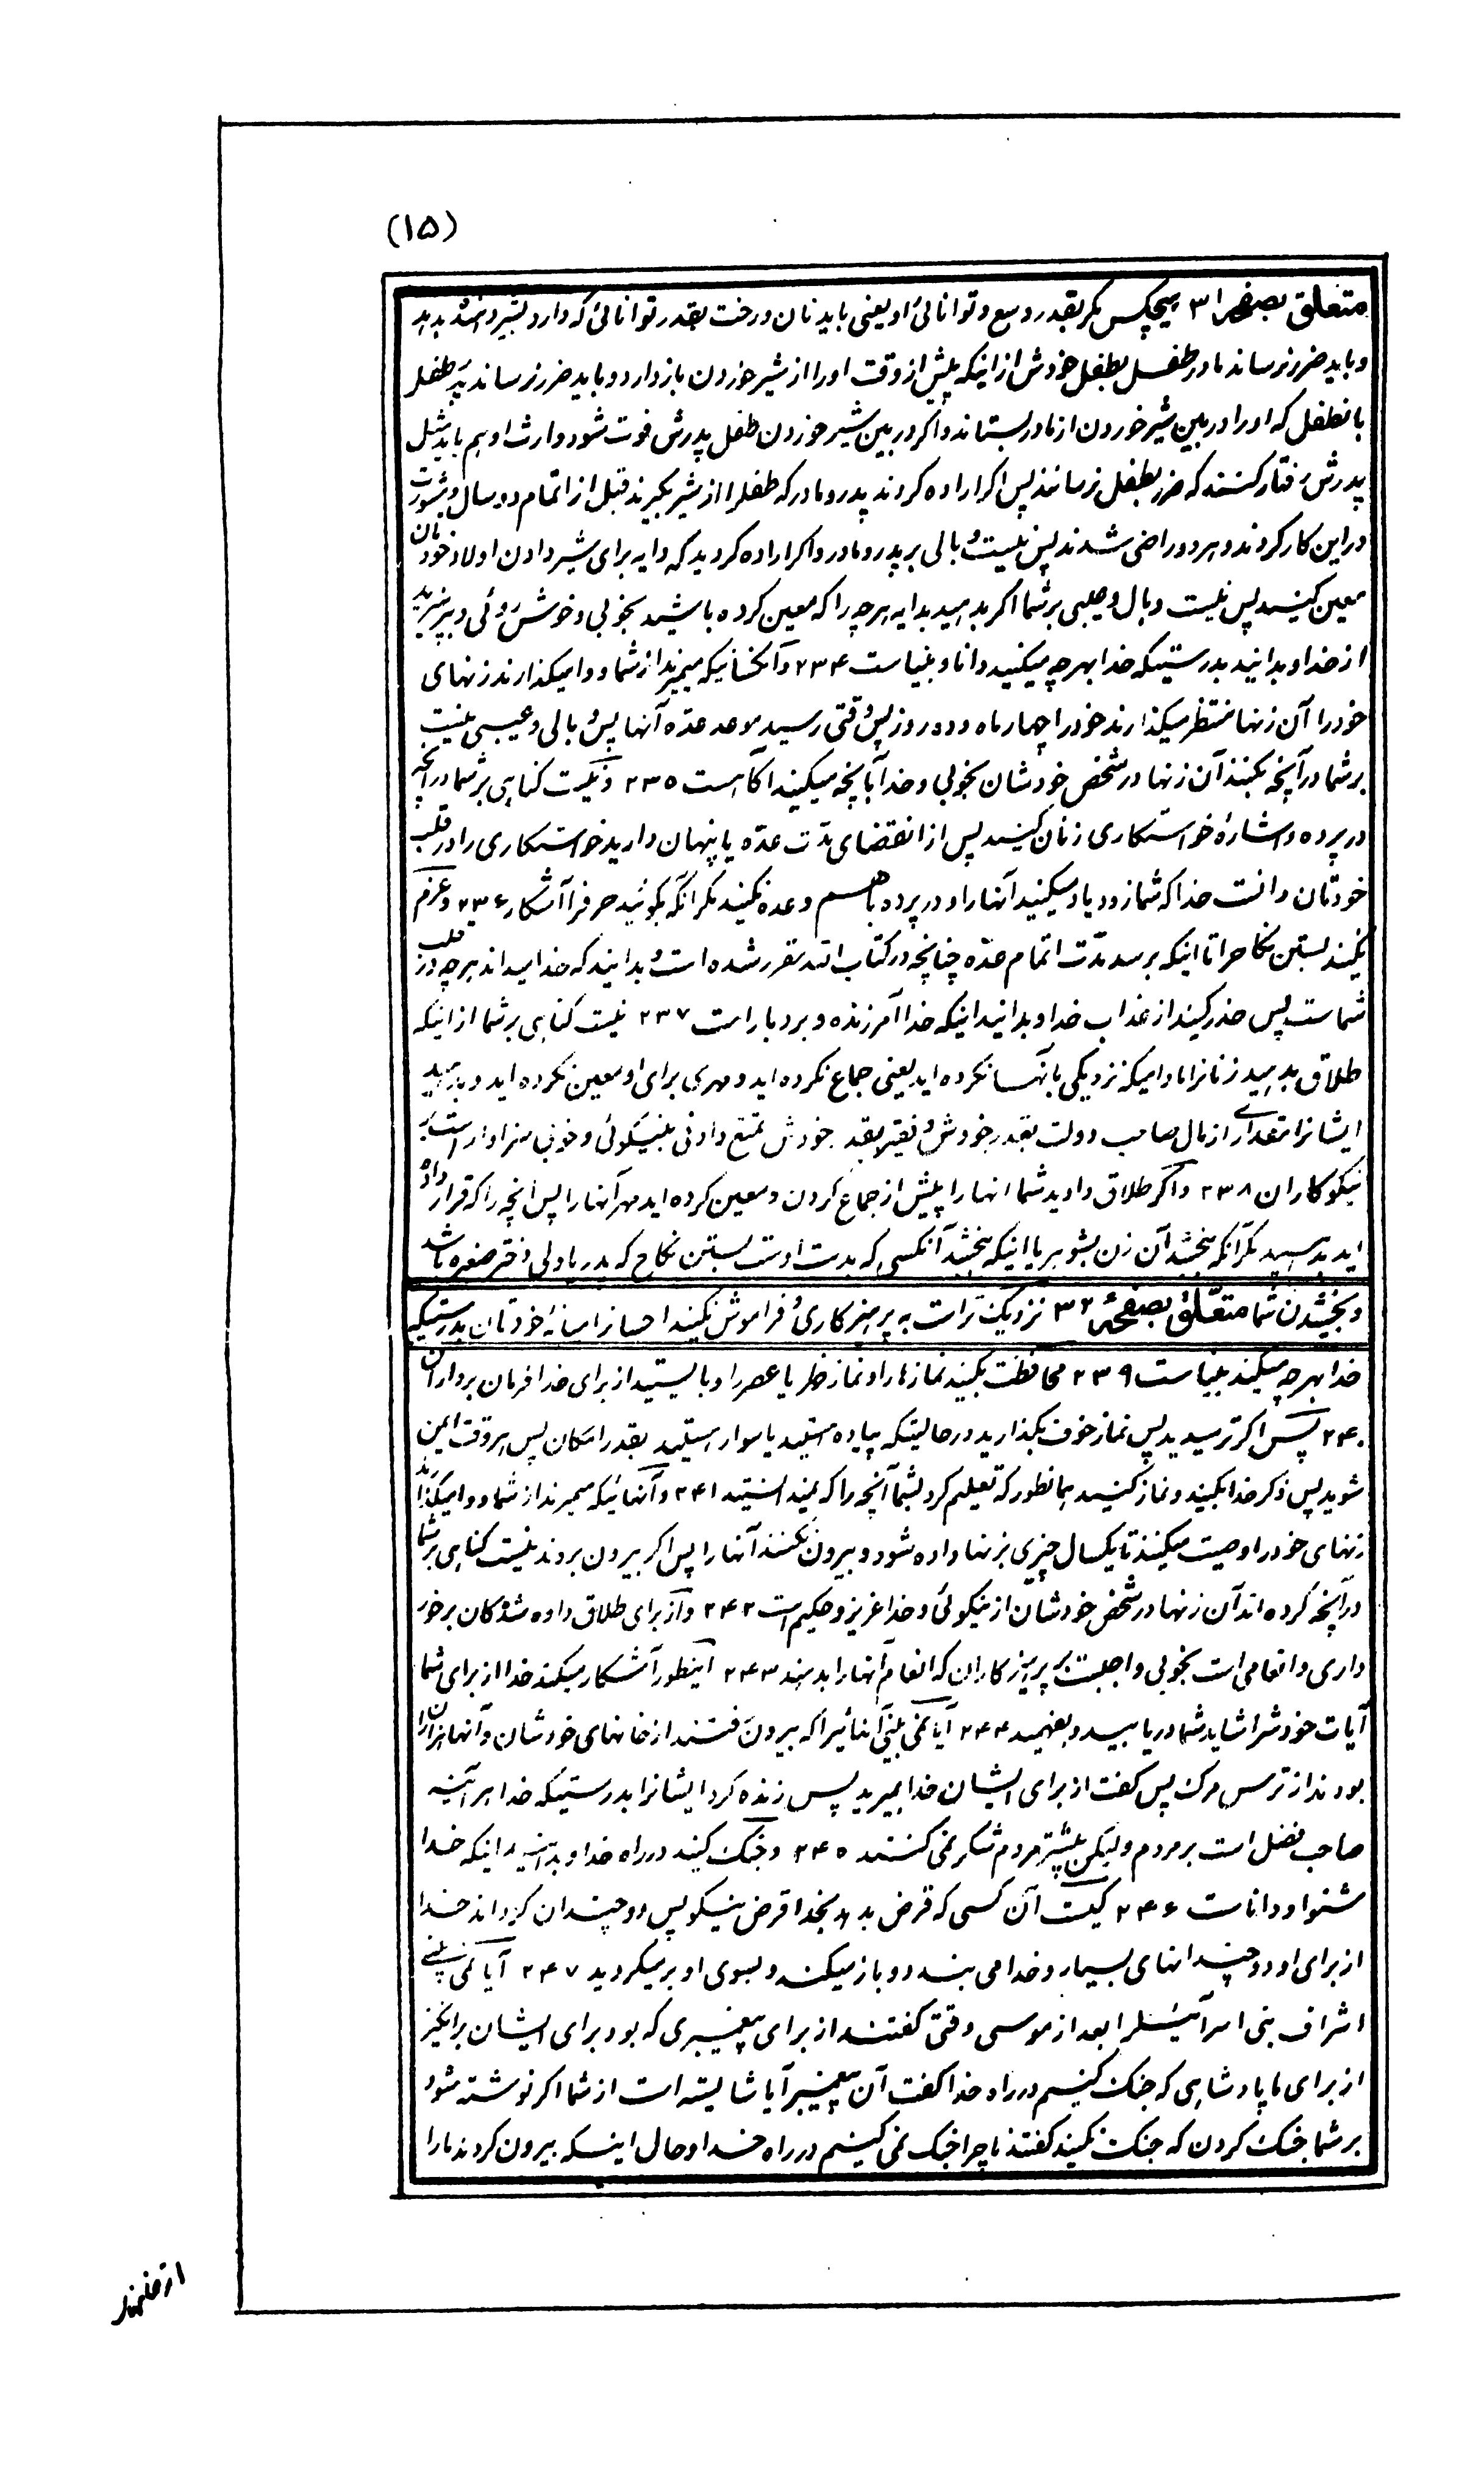 (۱۵)
متعلق بصفحه ۳۱ هیچکس مگر بقدر وسع و توانائی او یعنی باید نان و رخت بقدر توانائی که دارد بشیر دهنده بدهد
و باید ضرر نرساند مادر طفل بطفل خودش از اینکه پیش از وقت او را از شیر خوردن باز دارد و باید ضرر نرساند پدر طفل
بانطفل که او را در بین شیر خوردن از مادر بستاند و اکر در بین شیر خوردن طفل پدرش فوت شود وارث او هم باید مثل
پدرش رفتار کنند که ضرر بطفل نرسانند پس اکر اراده کردند پدر و مادر که طفل را از شیر بکیرند قبل از اتمام دو سال و مشورت
در این کار کردند و هر دو راضی شدند پس نیست وبالی بر پدر و مادر و اکر اراده کردید که دایه برای شیر دادن اولاد خودتان
معین کنید پس نیست وبال و عیبی بر شما اکر بدهید بدایه هر چه را که معین کرده باشید بخوبی و خوش روئی و بپرهیزید
از خدا و بدانید بدرستیکه خدا بهر چه میکنید دانا و بیناست ۲۳۴ و آنکسانیکه میمیرند از شما و وامیکذارند زنهای
خود را آن زنها منتظر میکذارند خود را چهار ماه و ده روز پس وقتی رسید موعد عده آنها پس وبالی و عیبی نیست
بر شما در آنچه بکنند آن زنها در شخص خودشان بخوبی و خدا بآنچه میکنید آکاهست ۲۳۵ و نیست کناهی بر شما در آنچه
در پرده و اشاره خواستکاری زنان کنید پس از انقضای مدت عده یا پنهان دارید خواستکاری را در قلب
خودتان دانست خدا که شما زود یاد میکنید آنها را و در پرده باهم وعده نکنید مکر آنکه بکوئید حرفرا آشکار ۲۳۶ و عزم
نکنید بستن نکاح را تا اینکه برسد مدت اتمام عده چنانچه در کتاب الله مقرر شده است و بدانید که خدا میداند هر چه در قلب
شماست پس حذر کنید از عذاب خدا و بدانید اینکه خدا آمرزنده و بردبار است ۲۳۷ نیست کناهی بر شما از اینکه
طلاق بدهید زنانرا مادامیکه نزدیکی بآنها نکرده اید یعنی جماع نکرده اید و مهری برای او معین نکرده اید و بدهید
ایشانرا مقداری از مال صاحب دولت بقدر خودش و فقیر بقدر خودش تمتع دادنی بنیکوئی و خوبی سزاوار است بر
نیکوکاران ۲۳۸ و اکر طلاق دادید شما انها را پیش از جماع کردن و معین کرده اید مهر آنها را پس آنچه را که قرار داده
اید بدهید مکر آنکه ببخشد آن زن بشوهر یا اینکه ببخشد آنکسی که بدست اوست بستن نکاح که پدر یا ولی دختر صغیره باشد
و بخشیدن شما متعلق بصفحه ۳۲ نزدیک تر است به پرهیزکاری و فراموش نکنید احسانرا میانه خودتان بدرستیکه
خدا بهر چه میکنید بیناست ۲۳۹ محافظت بکنید نمازها را و نماز ظهر یا عصر را و بایستید از برای خدا فرمان برداران
۲۴۰ پس اکر ترسیدید پس نماز خوف بکذارید در حالتیکه پیاده هستید یا سوار هستید بقدر امکان پس هر وقت ایمن
شوید پس ذکر خدا بکنید و نماز کنید همانطور که تعلیم کرد بشما آنچه را که نمیدانستید ۲۴۱ و آنهائیکه میمیرند از شما و وامیکذارند
زنهای خود را وصیت میکنند تا یکسال چیزی بزنها داده شود و بیرون نکنند آنها را پس اکر بیرون بروند نیست کناهی بر شما
در آنچه کرده اند آن زنها در شخص خودشان از نیکوئی و خدا عزیز و حکیم است ۲۴۲ و از برای طلاق داده شدکان برخور
داری و انعامی است بخوبی واجبست بر پرهیزکاران که انعام آنها را بدهند ۲۴۳ اینطور آشکار میکند خدا از برای شما
آیات خودش را شاید شما دریابید و بفهمید ۲۴۴ آیا نمی بینی آنهائیرا که بیرون رفتند از خانهای خودشان و آنها هزاران
بودند از ترس مرک پس کفت از برای ایشان خدا بمیرید پس زنده کرد ایشانرا بدرستیکه خدا هر آینه
صاحب فضل است بر مردم ولیکن بیشتر مردم شکر نمی کنند ۲۴۵ و جنک کنید در راه خدا و بدانید اینکه خدا
شنوا و داناست ۲۴۶ کیست آن کسی که قرض بدهد بخدا قرض نیکو پس دو چندان کرداند خدا
از برای او دو چندانهای بسیار و خدا می بندد و باز میکند و بسوی او برمیکردید ۲۴۷ آیا نمی بینی
اشراف بنی اسرآئیلرا بعد از موسی وقتی کفتند از برای پیغمبری که بود برای ایشان برانکیز
از برای ما پادشاهی که جنک کنیم در راه خدا کفت آن پیغمبر آیا شایسته است از شما اکر نوشته شود
بر شما جنک کردن که جنک نکنید کفتند ما چرا جنک نمی کنیم در راه خدا و حال اینکه بیرون کردند ما را